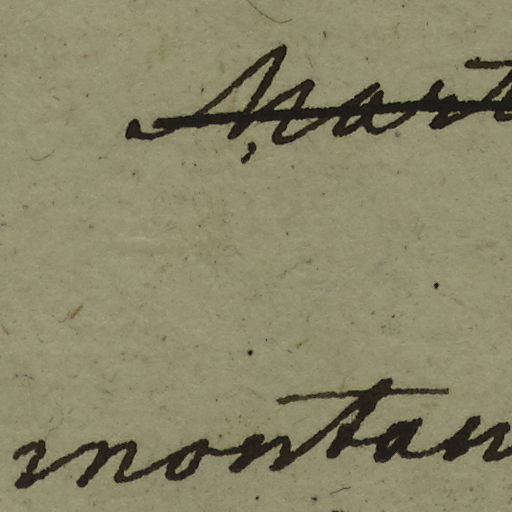 Mart
montan